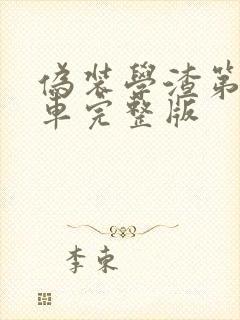 偽裝學渣第
車完整版
李東